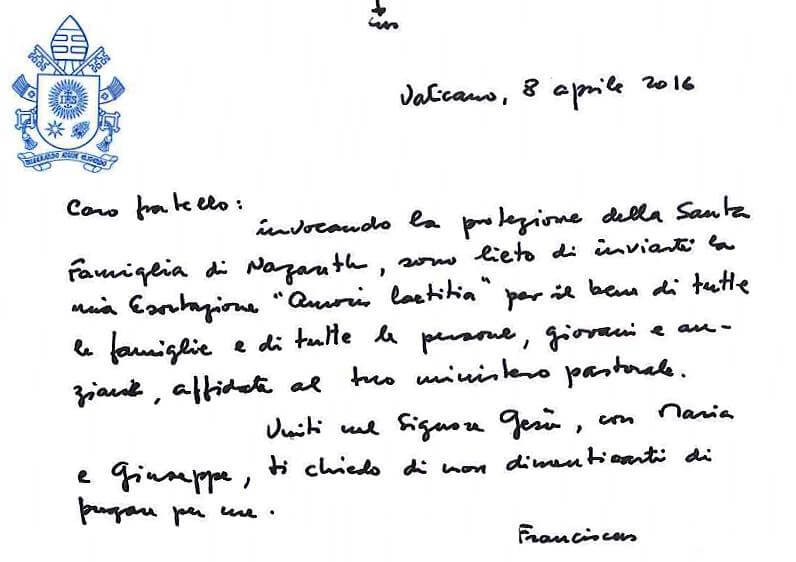 IHS
MISERANDO ATQUE ELIGENDO
Vaticano, 8 aprile 2016
Caro fratello:
invocando la protezione della Santa
Famiglia di Nazareth, sono lieto di inviarti la
mia Esortazione "Amoris laetitia" per il bene di tutte
le famiglie e di tutte le persone, giovani e an-
ziane, affidate al tuo ministero pastorale.
Uniti nel Signore Gesù, con Maria
e Giuseppe, ti chiedo di non dimenticarti di
pregare per me.
Franciscus